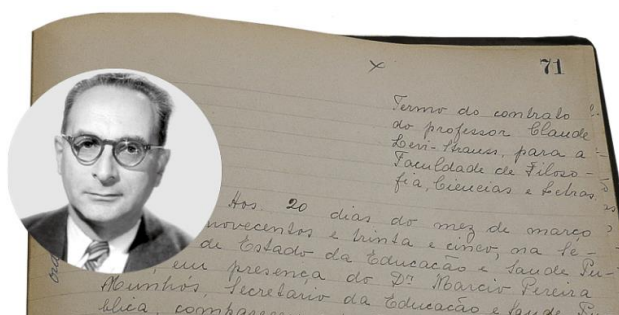 71
Termo do contrato
do professor Claude
Levi-Strauss, para a
Faculdade de Filoso-
fia, Ciencias e Letras.
Aos 20 dias do mez de março
novecentos e trinta e cinco, na Se-
de Estado da Educação e Saude Pu-
em presença do Dr. Marcio Pereira
Munhos, Secretario da Educação e Saude Pu-
blica, comparece